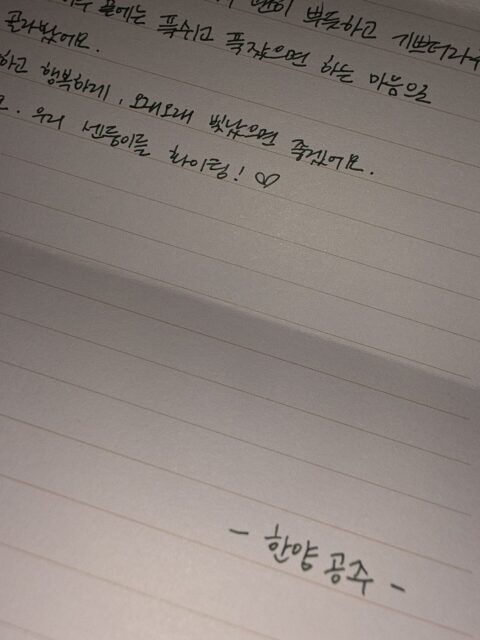 끝에는 푹쉬고 푹잤으면 하는 마음으로
뿌듯하고 기쁘더라구
골라봤어요.
하고 행복하게, 오래오래 빛났으면 좋겠어요.
요. 우리 센등이들 화이팅! ♡
- 한양 공주 -